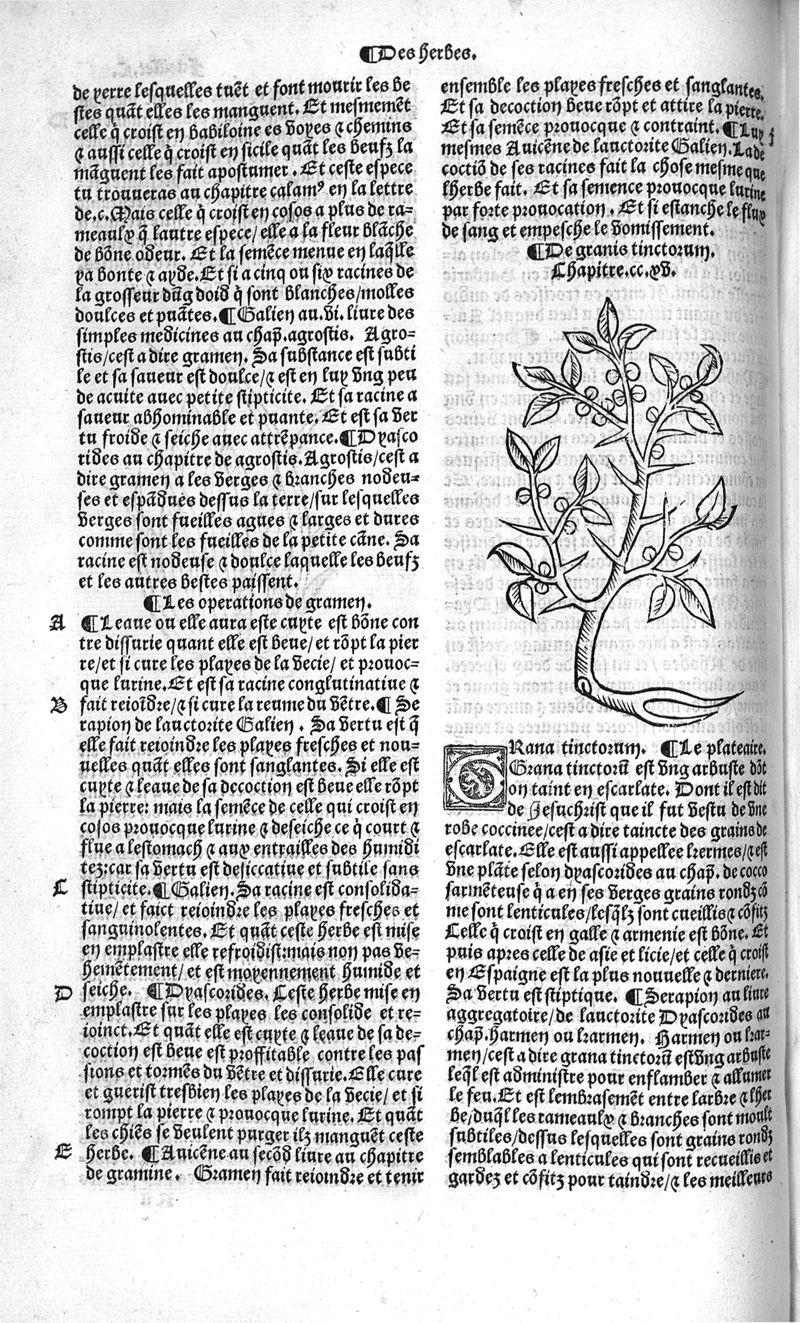 ¶Des herbes.
de yerre lesquelles tuẽt et font mourir les be
stes quãt elles les manguent. Et mesmemẽt
celle q̃ croist en babiloine es voyes ⁊ chemins
⁊ aussi celle q̃ croist en sicile quãt les beufz la
mãguent les fait apostumer. Et ceste espece
tu trouueras au chapitre calamꝰ en la lettre
de.c. Mais celle q̃ croist en cosos a plus de ra-
meaulx q̃ lautre espece/elle a la fleur blãche
de bõne odeur. Et la semẽce menue en laq̃lle
ya bonte ⁊ ayde. Et si a cinq ou six racines de
la grosseur dũg doid q̃ sont blanches/molles
doulces et puãtes. ¶Galien au.vi. liure des
simples medicines au chap̃.agrostis. Agro-
stis/cest a dire gramen. Sa substance est subti
le et sa saueur est doulce/⁊ est en luy vng peu
de acuite auec petite stipticite. Et sa racine a
saueur abhominable et puante. Et est sa ver
tu froide ⁊ seiche auec attrẽpance. ¶Dyasco
rides au chapitre de agrostis. Agrostis/cest a
dire gramen a les verges ⁊ branches nodeu-
ses et espãdues dessus la terre/sur lesquelles
verges sont fueilles agues ⁊ larges et dures
comme sont les fueilles de la petite cãne. Sa
racine est nodeuse ⁊ doulce laquelle les beufz
et les autres bestes paissent.
¶Les operations de gramen.
A ¶Leaue ou elle aura este cuyte est bõne con
tre dissurie quant elle est beue/et rõpt la pier
re/et si cure les playes de la vecie/et prouoc-
que lurine. Et est sa racine conglutinatiue ⁊
B fait reioĩdre/⁊ si cure la reume du vẽtre. ¶Se
rapion de lauctorite Galien. Sa vertu est q̃
elle fait reioindre les playes fresches et nou-
uelles quãt elles sont sanglantes. Si elle est
cuyte ⁊ leaue de sa decoction est beue elle rõpt
la pierre: mais la semẽce de celle qui croist en
cosos prouocque lurine ⁊ deseiche ce q̃ court ⁊
flue a lestomach ⁊ aux entrailles des humidi
tez:car sa vertu est desiccatiue et subtile sans
C stipticite. ¶Galien. Sa racine est consolida-
tiue/et faict reioindre les playes fresches et
sanguinolentes. Et quãt ceste herbe est mise
en emplastre elle refroidist:mais non pas ve-
hemẽtement/et est moyennement humide et
D seiche. ¶Dyascorides. Ceste herbe mise en
emplastre sur les playes les consolide et re-
ioinct. Et quãt elle est cuyte ⁊ leaue de sa de-
coction est beue est proffitable contre les pas
sions et tormẽs du vẽtre et dissurie. Elle cure
et guerist tresbien les playes de la vecie/et si
rompt la pierre ⁊ prouocque lurine. Et quãt
les chiẽs se veulent purger ilz manguẽt ceste
E herbe. ¶Auicẽne au secõd liure au chapitre
de gramine. Gramen fait reioindre et tenir
ensemble les playes fresches et sanglantes.
Et sa decoction beue rõpt et attire la pierre.
Et sa semẽce prouocque ⁊ contraint. ¶Luy
mesmes Auicẽne de lauctorite Galien. La de
coctiõ de ses racines fait la chose mesme que
lherbe fait. Et sa semence prouocque lurine
par forte prouocation. Et si estanche le flux
de sang et empesche le vomissement.
¶De granis tinctorum.
Chapitre.cc.xv.
GRana tinctorum. ¶Le plateaire.
Grana tinctorũ est vng arbuste dõt
on taint en escarlate. Dont il est dit
de Jesuchrist que il fut vestu de vne
robe coccinee/cest a dire taincte des grains de
escarlate. Elle est aussi appellee kermes/⁊ est
vne plãte selon dyascorides au chap̃. de cocco
sarmẽteuse q̃ a en ses verges grains rondz cõ
me sont lenticules/lesq̃lz sont cueillis ⁊ cõfitz
Celle q̃ croist en galle ⁊ armenie est bõne. Et
puis apres celle de asie et licie/et celle q̃ croist
en Espaigne est la plus nouuelle ⁊ derniere.
Sa vertu est stiptique. ¶Serapion au liure
aggregatoire/de lauctorite Dyascorides au
chap̃.harmen ou karmen. Harmen ou kar-
men/cest a dire grana tinctorũ est vng arbuste
leq̃l est administre pour enflamber ⁊ allumer
le feu. Et est lembrasemẽt entre larbre ⁊ lher
be/duq̃l les rameaulx ⁊ branches sont moult
subtiles/dessus lesquelles sont grains rondz
semblables a lenticules qui sont recueillis et
gardez et cõfitz pour taindre/⁊ les meilleurs